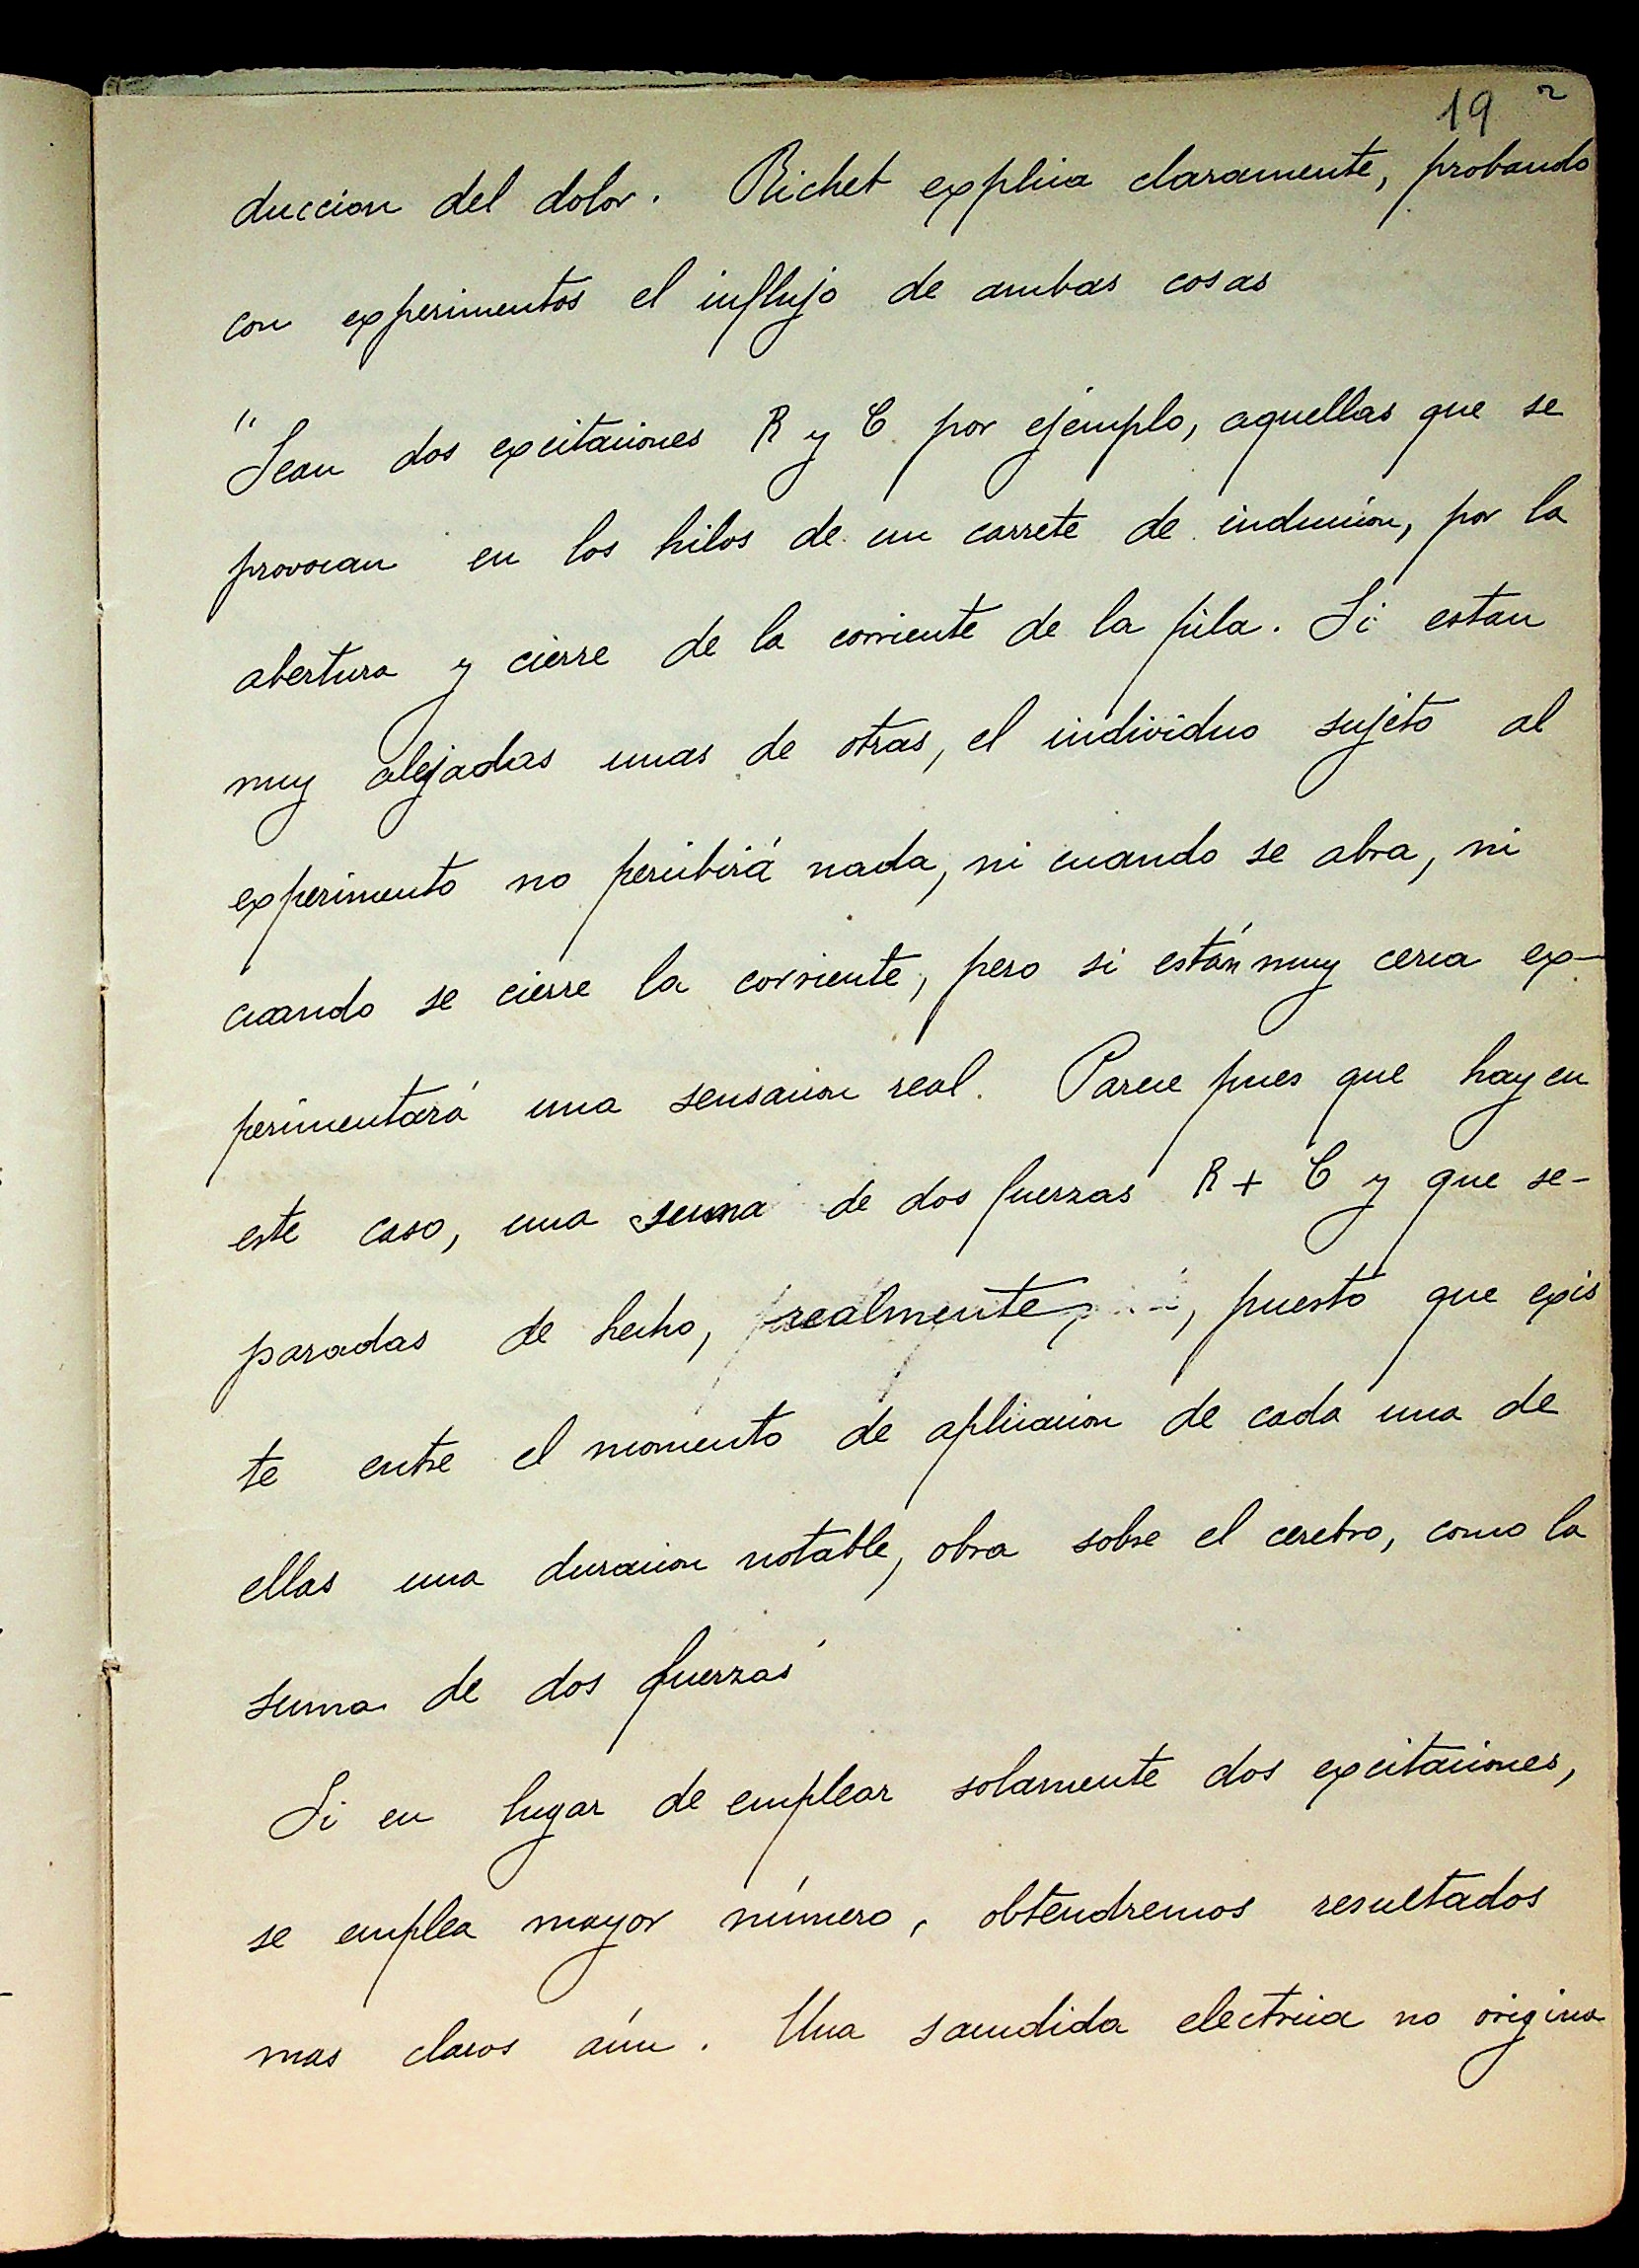 19 r
duccion del dolor. Richet explica claramente, probando
con experimentos el influjo de ambas cosas
"Sean dos excitaciones R y C por ejemplo, aquellas que se
provocan en los hilos de un carrete de induccion, por la
abertura y cierre de la corriente de la pila. Si estan
muy alejadas unas de otras, el individuo sujeto al
experimento no percibirá nada, ni cuando se abra, ni
cuando se cierre la corriente, pero si están muy cerca ex-
perimentará una sensacion real. Parece pues que hay en
este caso, una suma de dos fuerzas R + C y que se-
paradas de hecho, realmente, puesto que exis
te entre el momento de aplicacion de cada una de
ellas una duracion notable, obra sobre el cerebro, como la
suma de dos fuerzas
Si en lugar de emplear solamente dos excitaciones,
se emplea mayor número, obtendremos resultados
mas claros aún. Una sacudida electrica no origina